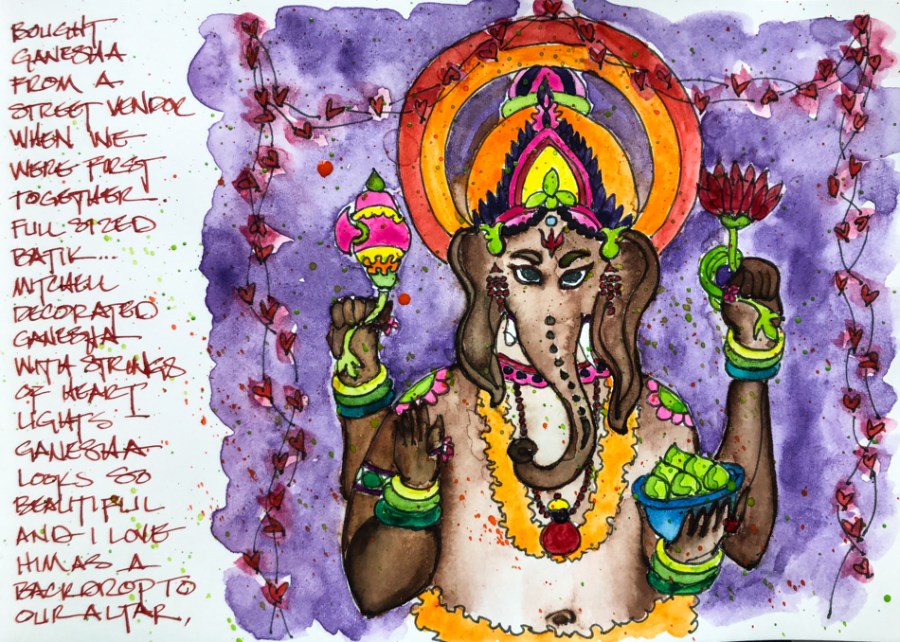 BOUGHT
GANESHA
FROM A
STREET VENDOR
WHEN WE
WERE FIRST
TOGETHER
FULL SIZED
BATIK...
MITCHELL
DECORATED
GANESHA
WITH STRINGS
OF HEART
LIGHTS
GANESHA
LOOKS SO
BEAUTIFUL
AND I LOVE
HIM AS A
BACKDROP TO
OUR ALTAR,